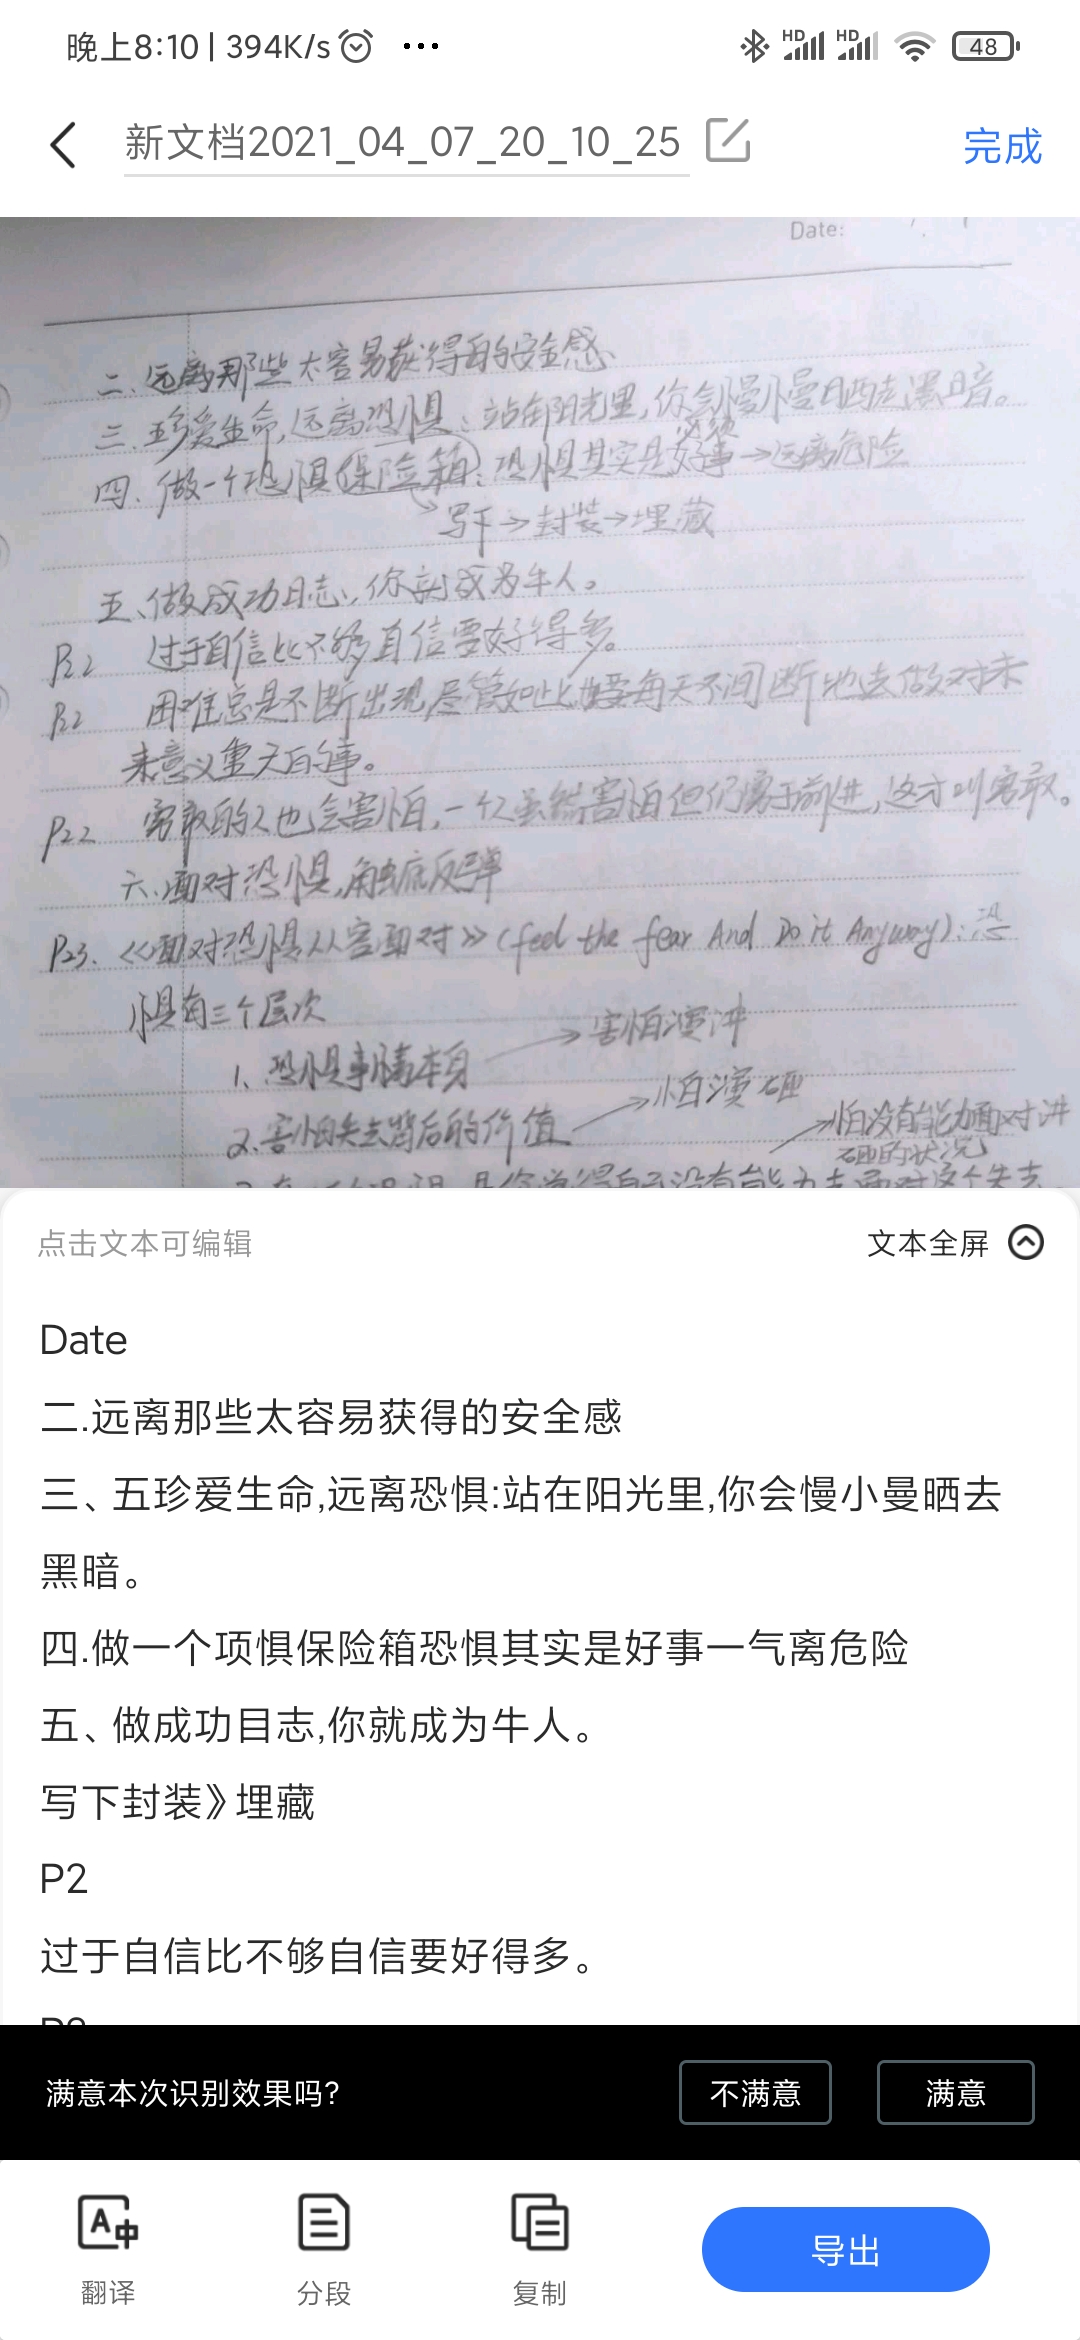 晚上8:10 | 394K/s ...
HD HD 48
新文档2021_04_07_20_10_25
完成
Date:
二、远离那些太容易获得的安全感
三、珍爱生命,远离恐惧:站在阳光里,你会慢慢晒走黑暗。
必须
四、做一个恐惧保险箱:恐惧其实是好事→远离危险
→写下→封装→埋藏
五、做成功日志,你就成为牛人。
P22 过于自信比不够自信要好得多。
P22 困难总是不断出现,尽管如此,要每天不间断地去做对未
来意义重大的事。
P22 勇敢的人也会害怕,一个人虽然害怕但仍勇于前进,这才叫勇敢。
六、面对恐惧,触底反弹
P23. 《面对恐惧从容面对》(feel the fear And Do it Anyway):恐
惧有三个层次
1、恐惧事情本身 → 害怕演讲
2、害怕失去背后的价值 → 怕演砸
→怕没有能力面对讲
砸的状况
没有能力去面对这个失去
点击文本可编辑
文本全屏
Date
二.远离那些太容易获得的安全感
三、五珍爱生命,远离恐惧:站在阳光里,你会慢小曼晒去
黑暗。
四.做一个项惧保险箱恐惧其实是好事一气离危险
五、做成功目志,你就成为牛人。
写下封装》埋藏
P2
过于自信比不够自信要好得多。
满意本次识别效果吗?
不满意
满意
A中
翻译
分段
复制
导出